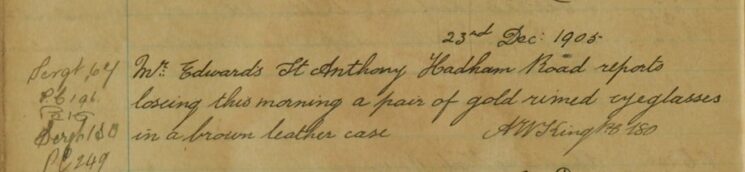 23rd Dec: 1905
Mr. Edwards St Anthony Hadham Road reports
loseing this morning a pair of gold rimed eyeglasses
in a brown leather case A W King PC 180
Sergt 64
PC 196
PC 210
Sergt 180
PC 249